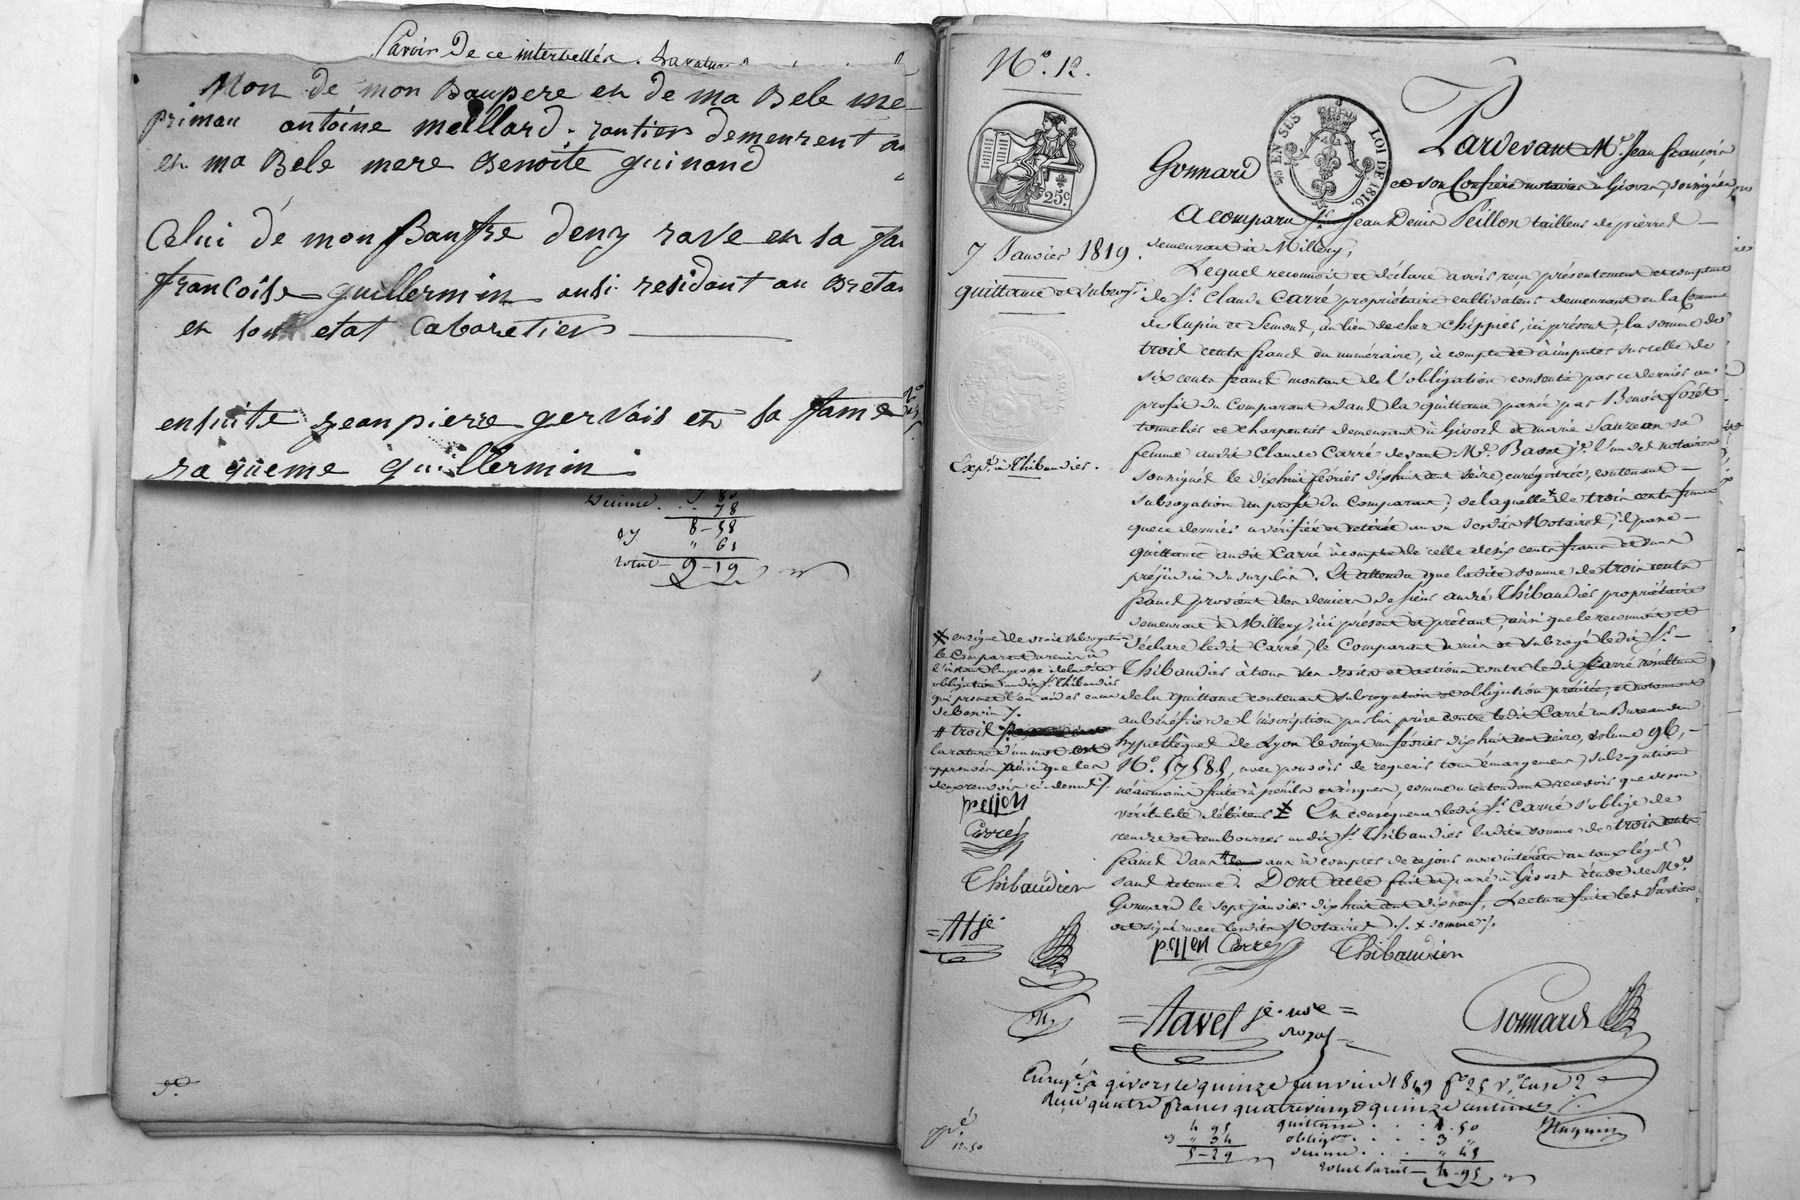 Savoir De ce interbellés.
Mon de mon Baupere en de ma Bele me
priman antoine meillard. rantier demeurent au
en ma Bele mere Benoite guinand
Celui dé mon Baufre deny rave en sa fa
francoise guillermin ausi residant au Breta
en son etat Cabaretier
ensuite jean pierre gervais en sa fame
raqueme guillermin
Dixme . . 78
8-58
" 61
total 9-19
Nº. 12.
25c
5/5 EN SUS LOI DE 1816.
Pardevant Me. Jean françois
Gonnard et son Confrere notaires à Givors, soussignés
A comparu Sr. Jean Denis Peillon tailleur de pierres
demeurant à Millery,
7 Janvier 1819.
quittance et subrogon.
Lequel reconnoit et déclare avoir reçu présentement et comptant
de Sr. Claude Carré propriétaire cultivateur demeurant en la Commune
de Tupin et Semond, au lieu de chez Chippier, ici présent, la somme de
trois cents francs en numéraire, à compte et à imputer sur celle de
six cents francs montant de l'obligation consentie par ce dernier au
profit du Comparant dans la quittance passée par Benoit forêt
tonnelier et charpentier demeurant à Givors et marie Sauzeon sa
femme audit Claude Carré devant Me. Basset jne. l'un des notaires
Expé. à Thibaudier.
soussignés le dix huit février dix huit cent seize, enrégistrée, contenant
subrogation au profit du Comparant; de laquelle * de trois cents francs
que ce dernier a vérifiée et retirée au vu desdits Notaires, il passe
quittance audit Carré à compte de celle de six cents francs et sans
préjudice du surplus. Et attendu que ladite somme de trois cents
francs provient des deniers de sieur andré Thibaudier propriétaire
demeurant à Millery, ici présent et prêtant, ainsi que le reconnoit et
déclare ledit Carré, le Comparant a mis et subrogé ledit Sr.
Thibaudier à tous ses droits et actions contre ledit Carré résultant
de la quittance contenant subrogation et obligation précitée, et notamment
au bénéfice de l'inscription par lui prise contre ledit Carré au Bureau des
hypothèques de Lyon le vingt un février dix huit cent seize, volume 96,
Nº. 17581, avec pouvoir de requerir tous émargement, subrogation
néanmoins faite à périls et risques, comme n'entendant recevoir que de son
véritable débiteur ‡ En conséquence ledit Sr. Carré s'oblige de
rendre et rembourser audit Sr. Thibaudier ladite somme de trois cents
francs dans # ans à compter de ce jour avec intérêts au taux légal
sans retenue. Dont acte fait et passé à Givors étude de Me.
Gonnard le sept janvier dix huit cent dix neuf, Lecture faite les Parties
ont signé avec lesdits Notaires ./. * somme /.
‡ en signe de vraie subrogation
le Comparant a remis à
l'instant la grosse de ladite
obligation audit Sr. Thibaudier
qui promet l'en aider en cas
de besoin /.
# trois
la rature d'un mot est
approuvée ainsi que les
deux renvois ci-dessus /.
pellon
Carré
Thibaudier
pellon Carré Thibaudier
=Tavel jeune=
Gonnard
Enregé. à givors le quinze janvier 1819 fº 25 Vº Case 2
Reçu quatre francs quatre vingt quinze centimes
4 95
" 34
5-29
quittance . . . 1.50
obligon. . . . 3 "
Dixme . . . " 45
total pareil 4-95